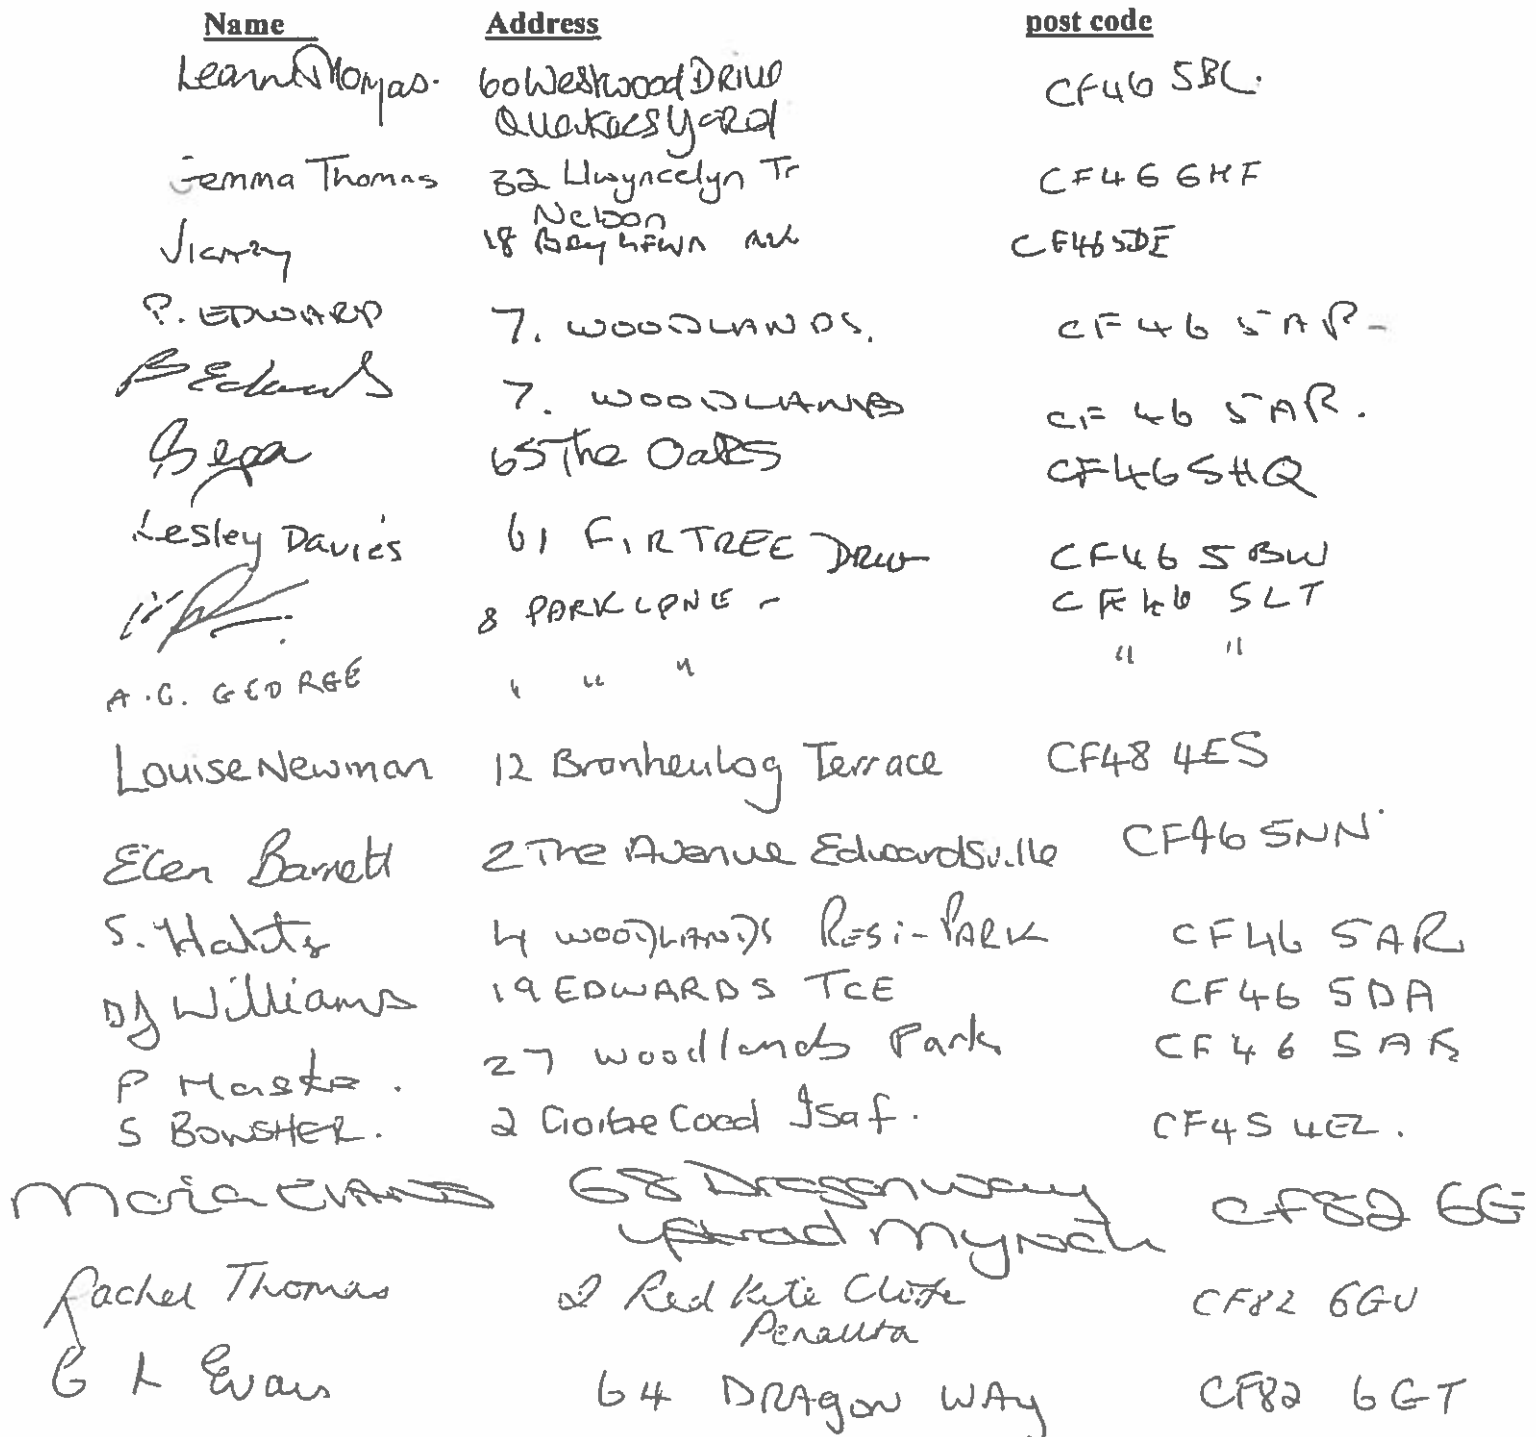 Name Address post code
Leanne Thomas. 60 Westwood Drive CF46 5BL.
Quakers Yard
Gemma Thomas 32 Llwyncelyn Tr CF46 6HF
Nelson
18 CF46 5DE
P. EDWARD 7. WOODLANDS. CF46 5AR-
B Edwards 7. WOODLANDS CF46 5AR.
65 The Oaks CF46 5HQ
Lesley Davies 61 FIRTREE DRIVE CF46 5BW
8 PARK LANE - CF46 5LT
A.G. GEORGE " " " " "
Louise Newman 12 Bronheulog Terrace CF48 4ES
Elen Barnett 2 The Avenue Edwardsville CF46 5NN
S. 4 WOODLANDS RESI-PARK CF46 5AR
DJ Williams 19 EDWARDS TCE CF46 5DA
P 27 Woodlands Park CF46 5AR
S BOWSHER. 2 Goitre Coed Isaf. CF45 4EZ.
Maria EVANS 68 Dragonway CF82 6G
Ystrad Mynach
Rachel Thomas 2 Red Kite Close CF82 6GU
Penallta
G L Evans 64 DRAGON WAY CF82 6GT